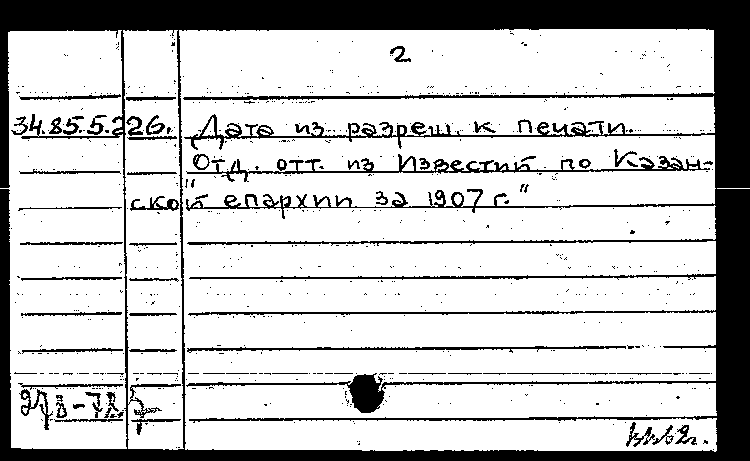 2
34.85.5.226. Дата из разреш. к печати.
"Отд. отт. из Известий по Казан-
ской епархии за 1907 г."